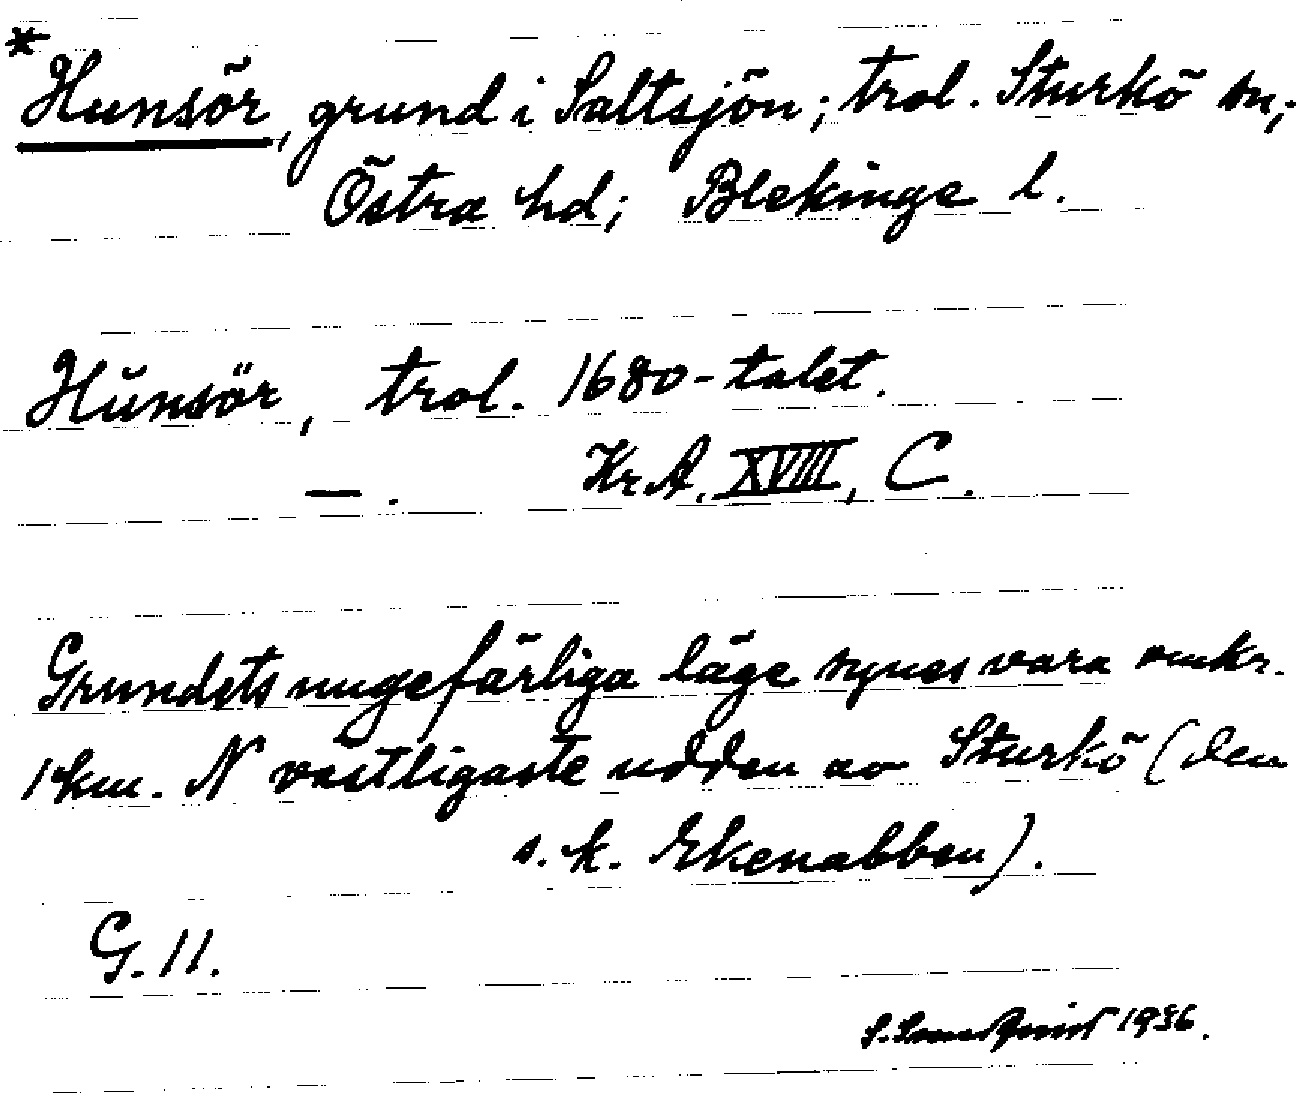 *Hunsör, grund i Saltsjön; trol. Sturkö sn;
Östra hd; Blekinge l.
Hŭnsör, trol. 1680-talet.
— . Kr.A. XVIII, C.
Grundets ungefärliga läge synes vara omkr.
1 km. N västligaste udden av Sturkö (den
s.k. Ekenabben).
G. 11.
1936.